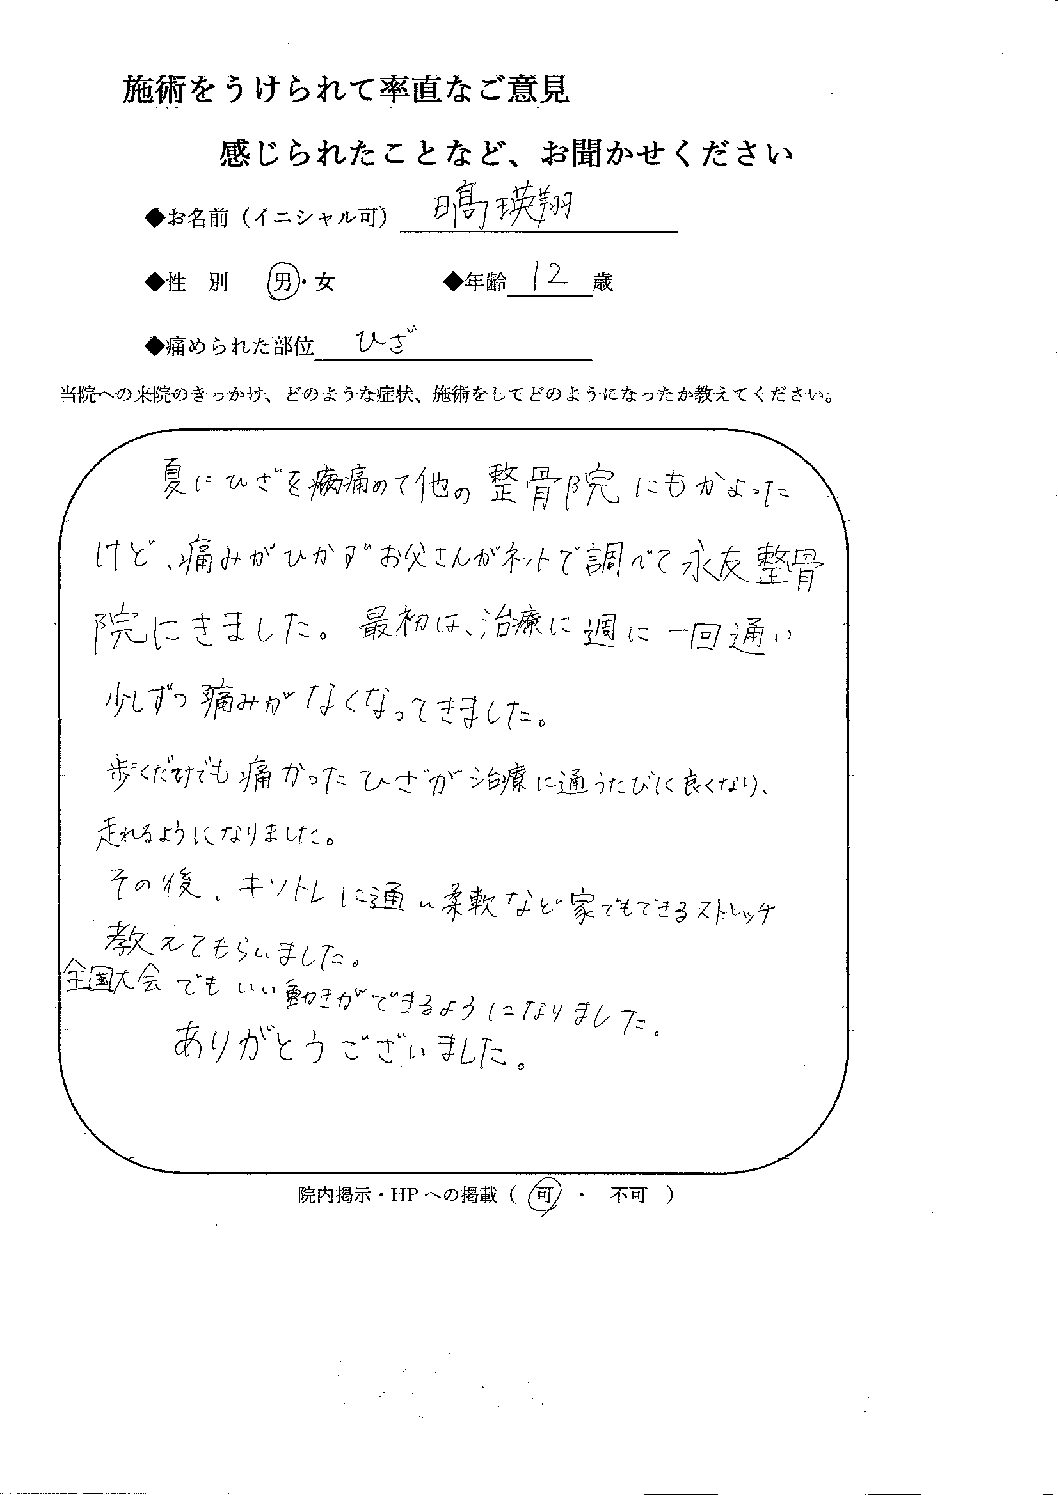 施術をうけられて率直なご意見
感じられたことなど、お聞かせください
◆お名前（イニシャル可） 日髙瑛翔
◆性　別　男・女　◆年齢 12 歳
◆痛められた部位 ひざ
当院への来院のきっかけ、どのような症状、施術をしてどのようになったか教えてください。
夏にひざを痛めて他の整骨院にもかよった
けど、痛みがひかずお父さんがネットで調べて永友整骨
院にきました。最初は、治療に週に一回通い
少しずつ痛みがなくなってきました。
歩くだけでも痛かったひざが治療に通うたびに良くなり、
走れるようになりました。
その後、キントレに通い柔軟など家でもできるストレッチ
教えてもらいました。
全国大会でもいい動きができるようになりました。
ありがとうございました。
院内掲示・HPへの掲載（ 可 ・ 不可 ）